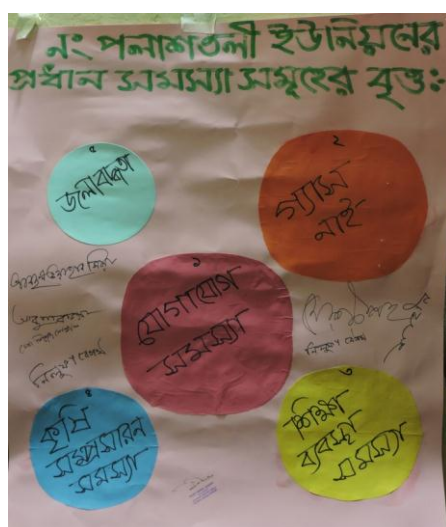 নং পলাশতলী ইউনিয়নের
প্রধান সমস্যা সমূহের বৃত্তঃ
৫
জলাবদ্ধতা
২
গ্যাস
নাই
১
যোগাযোগ
সমস্যা
৪
কৃষি
সম্প্রসারন
সমস্যা
৩
শিক্ষা
ব্যবস্থা
সমস্যা